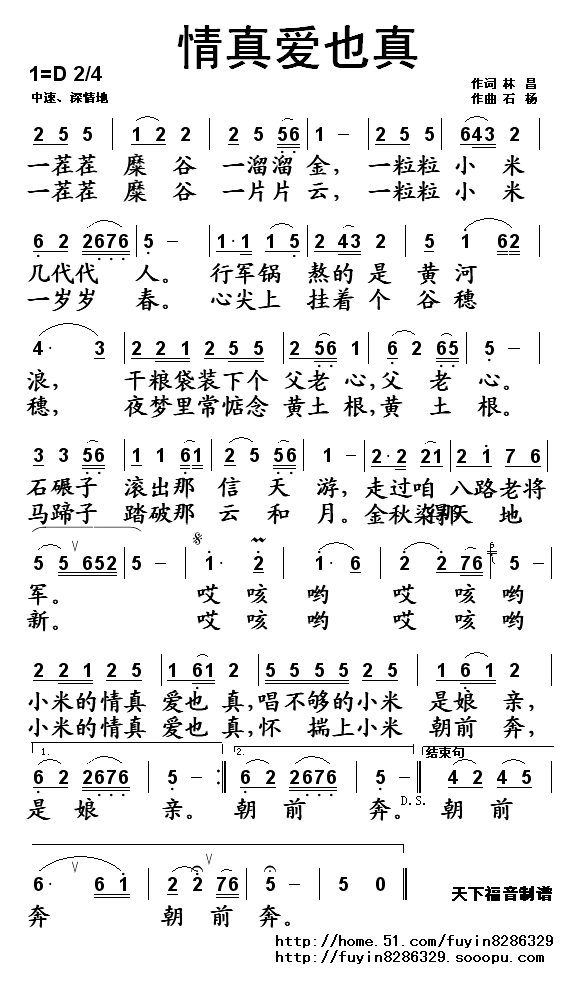 情真爱也真
1=D 2/4
中速、深情地
作词 林 昌
作曲 石 杨
2 5 5 | 1 2 2 | 2 5 56 | 1 – | 2 5 5 | 643 2 |
一茬茬 糜 谷 一溜溜 金, 一粒粒 小 米
一茬茬 糜 谷 一片片 云, 一粒粒 小 米
6 2 2676 | 5 – | 1·1 1 5 | 2 43 2 | 5 1 62 |
几代代 人。 行军锅 熬的 是 黄 河
一岁岁 春。 心尖上 挂着 个 谷 穗
4· 3 | 2 2 1 2 5 5 | 2 56 1 | 6 2 65 | 5 – |
浪, 干粮袋装下个 父老 心,父 老 心。
穗, 夜梦里常惦念 黄土 根,黄 土 根。
3 3 56 | 1 1 61 | 2 5 56 | 1 – | 2·2 21 | 2 1 7 6 |
石碾子 滚出那 信 天 游, 走过咱 八路老将
马蹄子 踏破那 云 和 月。金秋染那 得天 地
5 5 652 | 5 – | 1· 2 | 1· 6 | 2 2 76 | 5 – |
军。 哎 咳 哟 哎 咳 哟
新。 哎 咳 哟 哎 咳 哟
2 2 1 2 5 | 1 61 2 | 5 5 5 5 2 2 | 1 6 1 2 |
小米的情真 爱也 真,唱不够的小米 是娘 亲,
小米的情真 爱也 真,怀 揣上小米 朝前 奔,
1. 2. 结束句
6 2 2676 | 5 – :| 6 2 2676 | 5 – || 4 2 4 5 |
是 娘 亲。 朝 前 奔。D.S. 朝 前
6· 6 1 | 2 2 76 | 5 – | 5 0 ||
奔 朝 前 奔。
天下福音制谱
http://home.51.com/fuyin8286329
http://fuyin8286329.sooopu.com